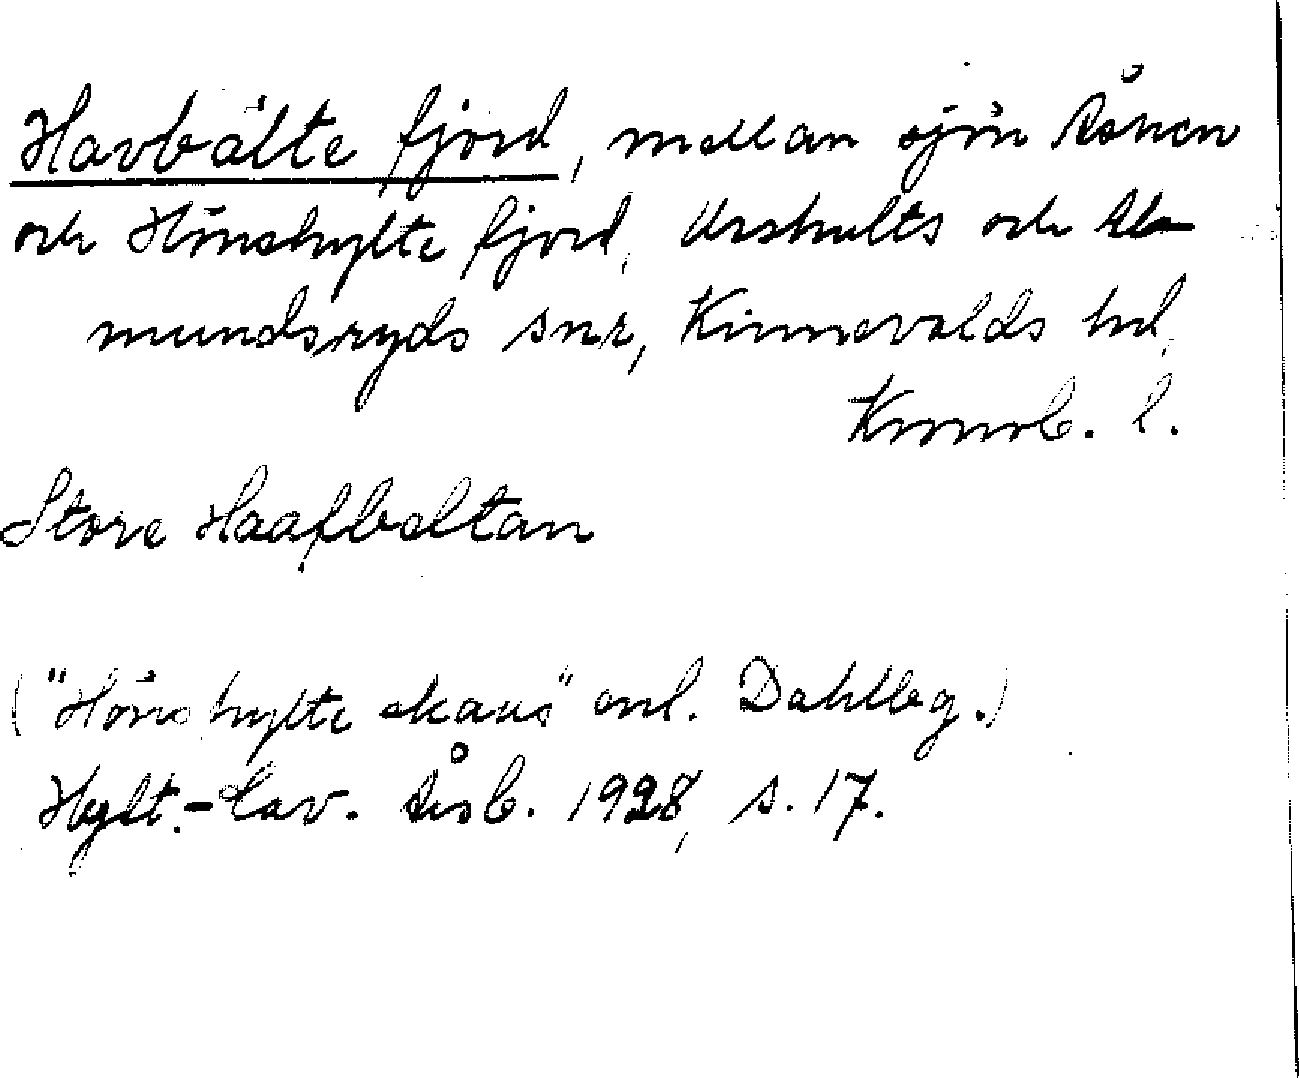 Havbälte fjord, mellan sjön Åsnen
och Hönshylte fjord, Urshults och Al-
mundsryds snr, Kinnevalds hd,
Kronob. l.
Store Haafbeltan
("Hönshylte skans" enl. Dahlbg.)
Hylt.-Cav. Årsb. 1928, s. 17.